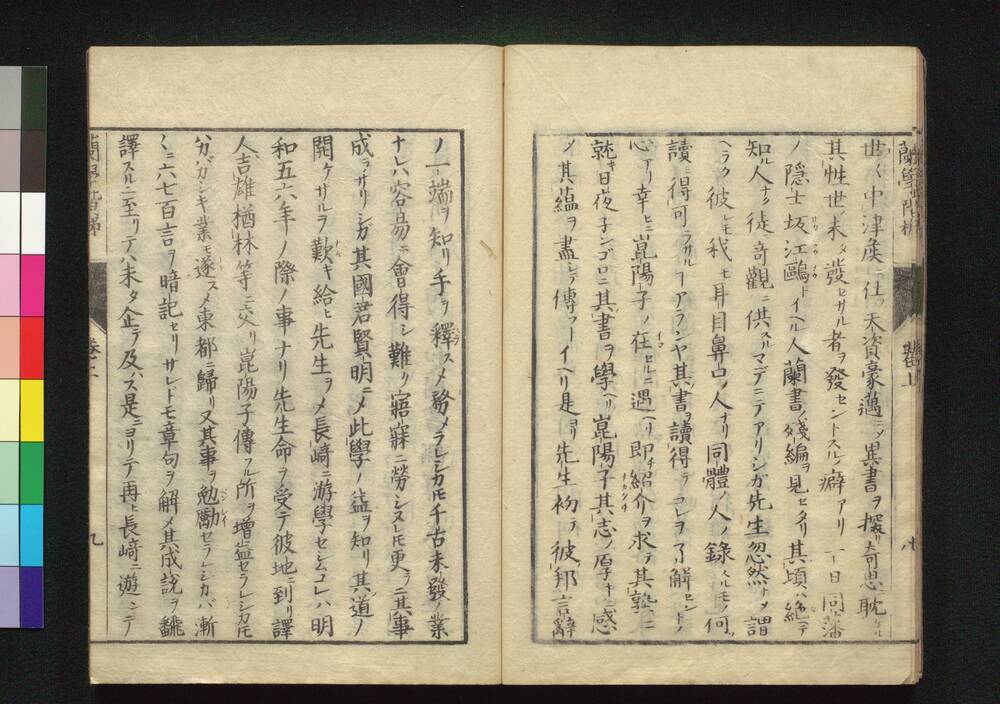 蘭學階梯
卷上
八
世々中津矦ニ仕フ天資豪邁ニシテ異書ヲ探リ奇思ニ耽ケル
其性世ノ未タ發セサル者ヲ發セントスル癖アリ一日同藩
ノ隱士坂江鷗トイヘル人蘭書ノ殘編ヲ見セタリ其頃ハ絶ヘテ
知ル人ナク徒奇觀ニ供スルマデニテアリシガ先生忽然トメ謂
ヘラク彼レモ我モ耳目鼻口ノ人ナリ同體ノ人ノ録スルモノ何ソ
讀ミ得可ラサルヿアランヤ其書ヲ讀得テコレヲ了解セントノ
心アリ幸ヒニ崑陽子ノ在セルニ遇ヘリ即チ紹介ヲ求テ其塾ニ
就キ日夜子ンゴロニ其書ヲ學ヘリ崑陽子其志ノ厚キニ感
メ其蘊ヲ盡シテ傳フトイヘリ是ヨリ先生初テ彼邦言辭
ノ一端ヲ知リ手ヲ釋スメ務メラレシカ𪜈千古未發ノ業
ナレハ容易ニ會得シ難リ寤寐ニ勞シヌレ𪜈更ラニ其事
成ラサリシガ其國君賢明ニメ此學ノ益ヲ知リ其道ノ
開ケサルヲ歎キ給ヒ先生ヲメ長﨑ニ游學セシムコレハ明
和五六年ノ際ノ事ナリ先生命ヲ受テ彼地ニ到リ譯
人吉雄楢林等ニ交リ崑陽子傳フル所ヲ增益セラレシカ𪜈
分ガバシキ業モ遂スメ東都ニ歸リ又其事ヲ勉勵セラレシカバ漸
ク二六七百言ヲ暗記セリサレドモ章句ヲ解メ其成説ヲ飜
譯スルニ至リテハ未タ企テ及ハス是ニヨリテ再ヒ長﨑ニ遊ンテ
蘭學階梯
卷上
九